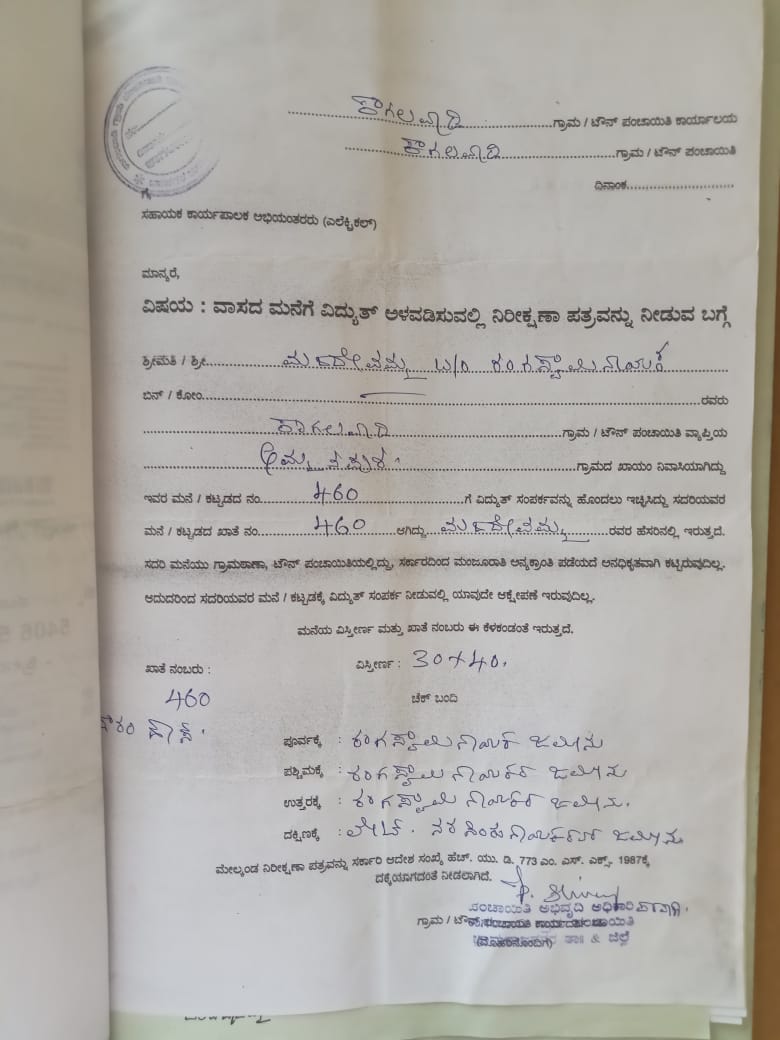 ಕಾಗಲವಾಡಿ ಗ್ರಾಮ / ಟೌನ್ ಪಂಚಾಯಿತಿ ಕಾರ್ಯಾಲಯ
ಕಾಗಲವಾಡಿ ಗ್ರಾಮ / ಟೌನ್ ಪಂಚಾಯಿತಿ
ದಿನಾಂಕ
ಸಹಾಯಕ ಕಾರ್ಯಪಾಲಕ ಅಭಿಯಂತರರು (ಎಲೆಕ್ಟ್ರಿಕಲ್)
ಮಾನ್ಯರೆ,
ವಿಷಯ : ವಾಸದ ಮನೆಗೆ ವಿದ್ಯುತ್ ಅಳವಡಿಸುವಲ್ಲಿ ನಿರೀಕ್ಷಣಾ ಪತ್ರವನ್ನು ನೀಡುವ ಬಗ್ಗೆ
ಶ್ರೀಮತಿ / ಶ್ರೀ. ಮಹದೇವಮ್ಮ W/o ರಂಗಸ್ವಾಮಿನಾಯಕ
ಬಿನ್ / ಕೋಂ. ರವರು
ಕಾಗಲವಾಡಿ ಗ್ರಾಮ / ಟೌನ್ ಪಂಚಾಯಿತಿ ವ್ಯಾಪ್ತಿಯ
ಗ್ರಾಮದ ಖಾಯಂ ನಿವಾಸಿಯಾಗಿದ್ದು
ಇವರ ಮನೆ / ಕಟ್ಟಡದ ನಂ. 460 ಗೆ ವಿದ್ಯುತ್ ಸಂಪರ್ಕವನ್ನು ಹೊಂದಲು ಇಚ್ಛಿಸಿದ್ದು ಸದರಿಯವರ
ಮನೆ / ಕಟ್ಟಡದ ಖಾತೆ ನಂ. 460 ಆಗಿದ್ದು ಮಹದೇವಮ್ಮ ರವರ ಹೆಸರಿನಲ್ಲಿ ಇರುತ್ತದೆ.
ಸದರಿ ಮನೆಯು ಗ್ರಾಮಠಾಣಾ, ಟೌನ್ ಪಂಚಾಯಿತಿಯಲ್ಲಿದ್ದು, ಸರ್ಕಾರದಿಂದ ಮಂಜೂರಾತಿ ಅನ್ಯಕ್ರಾಂತಿ ಪಡೆಯದೆ ಅನಧಿಕೃತವಾಗಿ ಕಟ್ಟಿರುವುದಿಲ್ಲ.
ಆದುದರಿಂದ ಸದರಿಯವರ ಮನೆ / ಕಟ್ಟಡಕ್ಕೆ ವಿದ್ಯುತ್ ಸಂಪರ್ಕ ನೀಡುವಲ್ಲಿ ಯಾವುದೇ ಆಕ್ಷೇಪಣೆ ಇರುವುದಿಲ್ಲ.
ಮನೆಯ ವಿಸ್ತೀರ್ಣ ಮತ್ತು ಖಾತೆ ನಂಬರು ಈ ಕೆಳಕಂಡಂತೆ ಇರುತ್ತದೆ.
ಖಾತೆ ನಂಬರು : ವಿಸ್ತೀರ್ಣ : 30×40.
460 ಚೆಕ್ ಬಂದಿ
ಪೂರ್ವಕ್ಕೆ : ರಂಗಸ್ವಾಮಿನಾಯಕರ ಜಮೀನು
ಪಶ್ಚಿಮಕ್ಕೆ : ರಂಗಸ್ವಾಮಿ ನಾಯಕರ ಜಮೀನು
ಉತ್ತರಕ್ಕೆ : ರಂಗಸ್ವಾಮಿ ನಾಯಕರ ಜಮೀನು.
ದಕ್ಷಿಣಕ್ಕೆ : ಲೇಟ್. ನರಸಿಂಹನಾಯಕರ ಜಮೀನು
ಮೇಲ್ಕಂಡ ನಿರೀಕ್ಷಣಾ ಪತ್ರವನ್ನು ಸರ್ಕಾರಿ ಆದೇಶ ಸಂಖ್ಯೆ ಹೆಚ್. ಯು. ಡಿ. 773 ಎಂ. ಎಸ್. ಎಕ್ಸ್.- 1987ಕ್ಕೆ
ದಕ್ಕೆಯಾಗದಂತೆ ನೀಡಲಾಗಿದೆ.
ಪಂಚಾಯಿತಿ ಅಭಿವೃದ್ಧಿ ಅಧಿಕಾರಿ
ಗ್ರಾಮ / ಟೌನ್ ಪಂಚಾಯಿತಿ
(ಮೊಹರಿನೊಂದಿಗೆ) ತಾ॥ & ಜಿಲ್ಲೆ